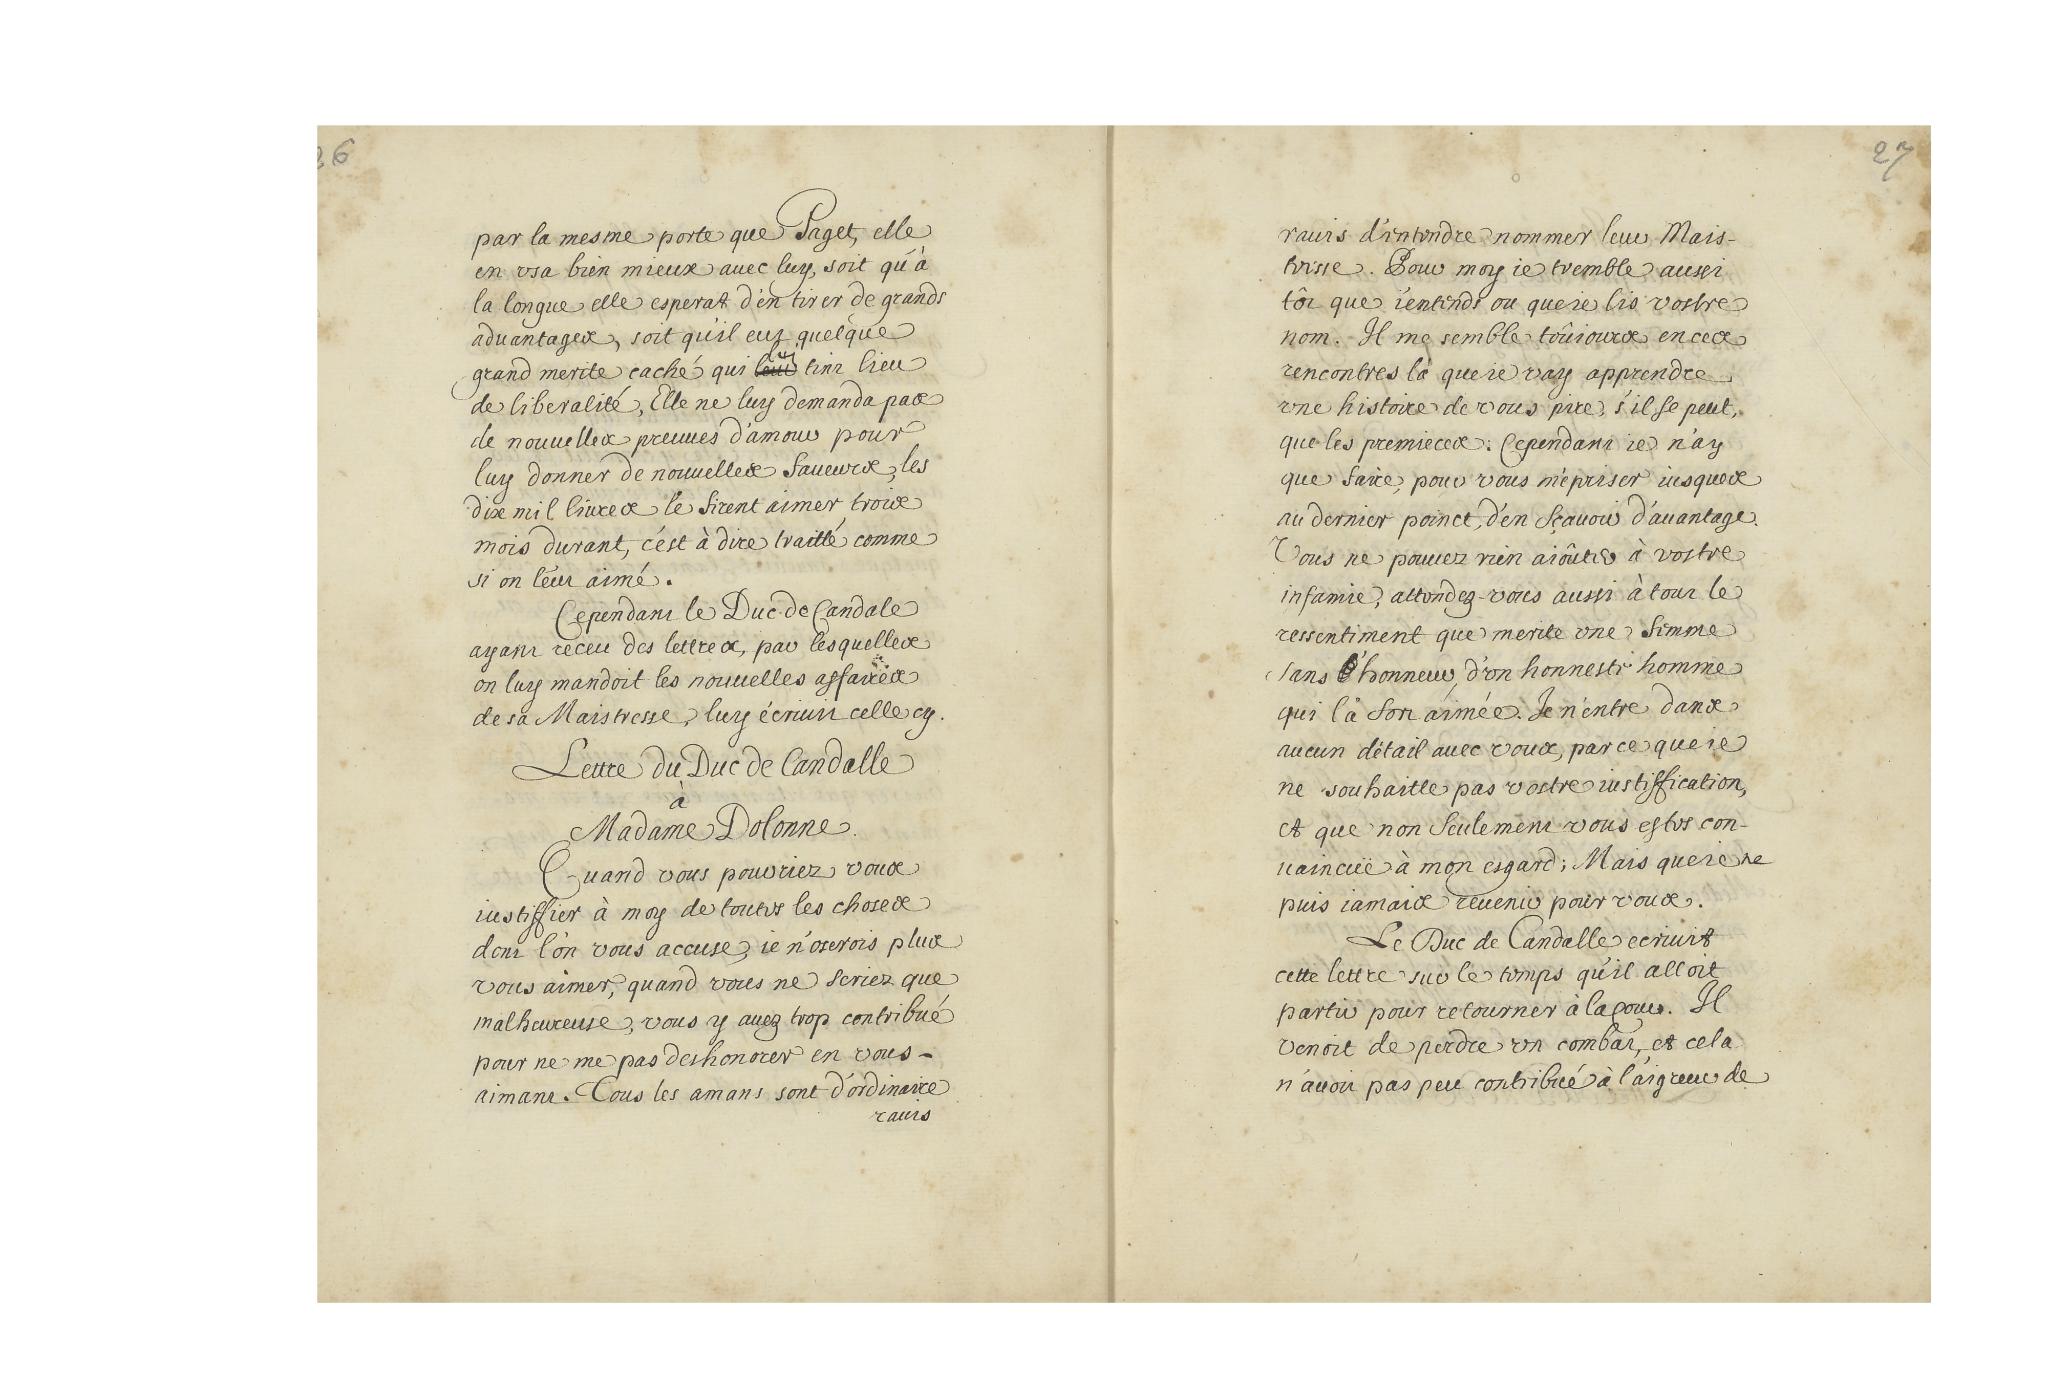 26
par la mesme porte que Paget, elle
en vsa bien mieux auec luy, soit qu'à
la longue elle esperast d'en tirer de grands
aduantages, soit qu'il eut quelque
grand merite caché qui luy tint lieu
de liberalité, Elle ne luy demanda pas
de nouuelles preuues d'amour pour
luy donner de nouuelles faueurs, les
dix mil liures le firent aimer trois
mois durant, c'est à dire traitté comme
si on l'eut aimé.
Cependant le Duc de Candale
ayant receu des lettres, par lesquelles
on luy mandoit les nouuelles affaires
de sa Maistresse, luy écriuit celle cy.
Lettre du Duc de Candalle
à
Madame Dolonne.
Quand vous pouvriez vous
iustiffier à moy de toutes les choses
dont l'on vous accuse, ie n'oserois plus
vous aimer, quand vous ne seriez que
malheureuse, vous y auez trop contribué
pour ne me pas deshonorer en vous-
aimant. Tous les amans sont d'ordinaire
rauis
27
rauis d'entendre nommer leur Mais-
tresse. Pour moy ie tremble aussi
tôt que i'entends ou que ie lis vostre
nom. Il me semble toûiours en ces
rencontres là que ie vay apprendre
vne histoire de vous pire, s'il se peut,
que les premieres: Cependant ie n'ay
que faire, pour vous mépriser iusques
au dernier poinct, d'en sçauoir d'auantage.
Vous ne pouuez rien aioûter à vostre
infamie, attendez-vous aussi à tout le
ressentiment que merite vne femme
sans honneur, d'vn honneste homme
qui l'a fort aimée. Je n'entre dans
aucun détail auec vous, parce que ie
ne souhaitte pas vostre iustiffication,
et que non seulement vous estes con-
uaincuë à mon esgard; Mais que ie ne
puis iamais reuenir pour vous.
Le Duc de Candalle ecriuit
cette lettre sur le temps qu'il alloit
partir pour retourner à la cour. Il
venoit de perdre vn combat, et cela
n'auoit pas peu contribué à l'aigreur de